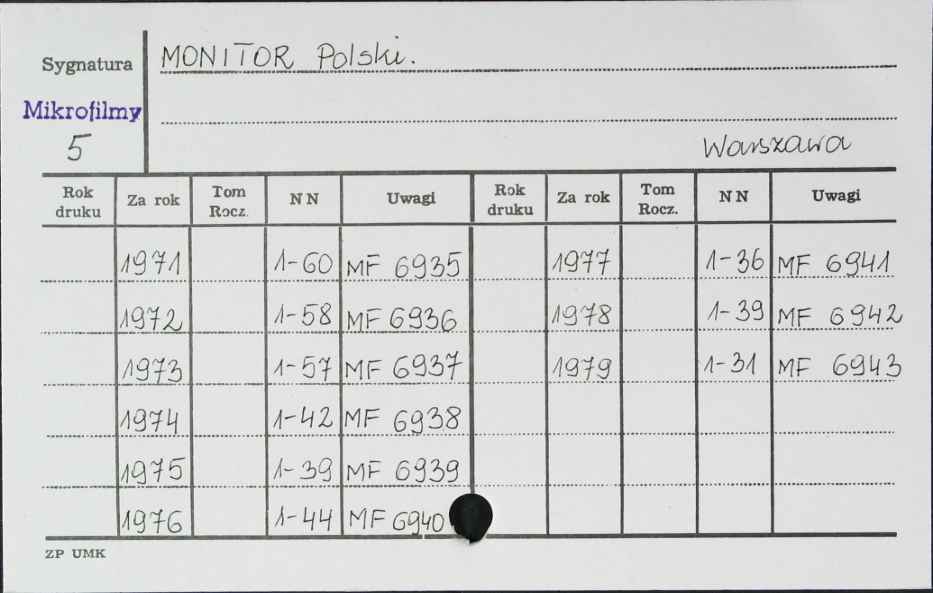 Sygnatura
MONITOR Polski.
Mikrofilmy
5
Warszawa
Rok druku Za rok Tom Rocz. NN Uwagi Rok druku Za rok Tom Rocz. NN Uwagi
1971 1-60 MF 6935 1977 1-36 MF 6941
1972 1-58 MF 6936 1978 1-39 MF 6942
1973 1-57 MF 6937 1979 1-31 MF 6943
1974 1-42 MF 6938
1975 1-39 MF 6939
1976 1-44 MF 6940
ZP UMK